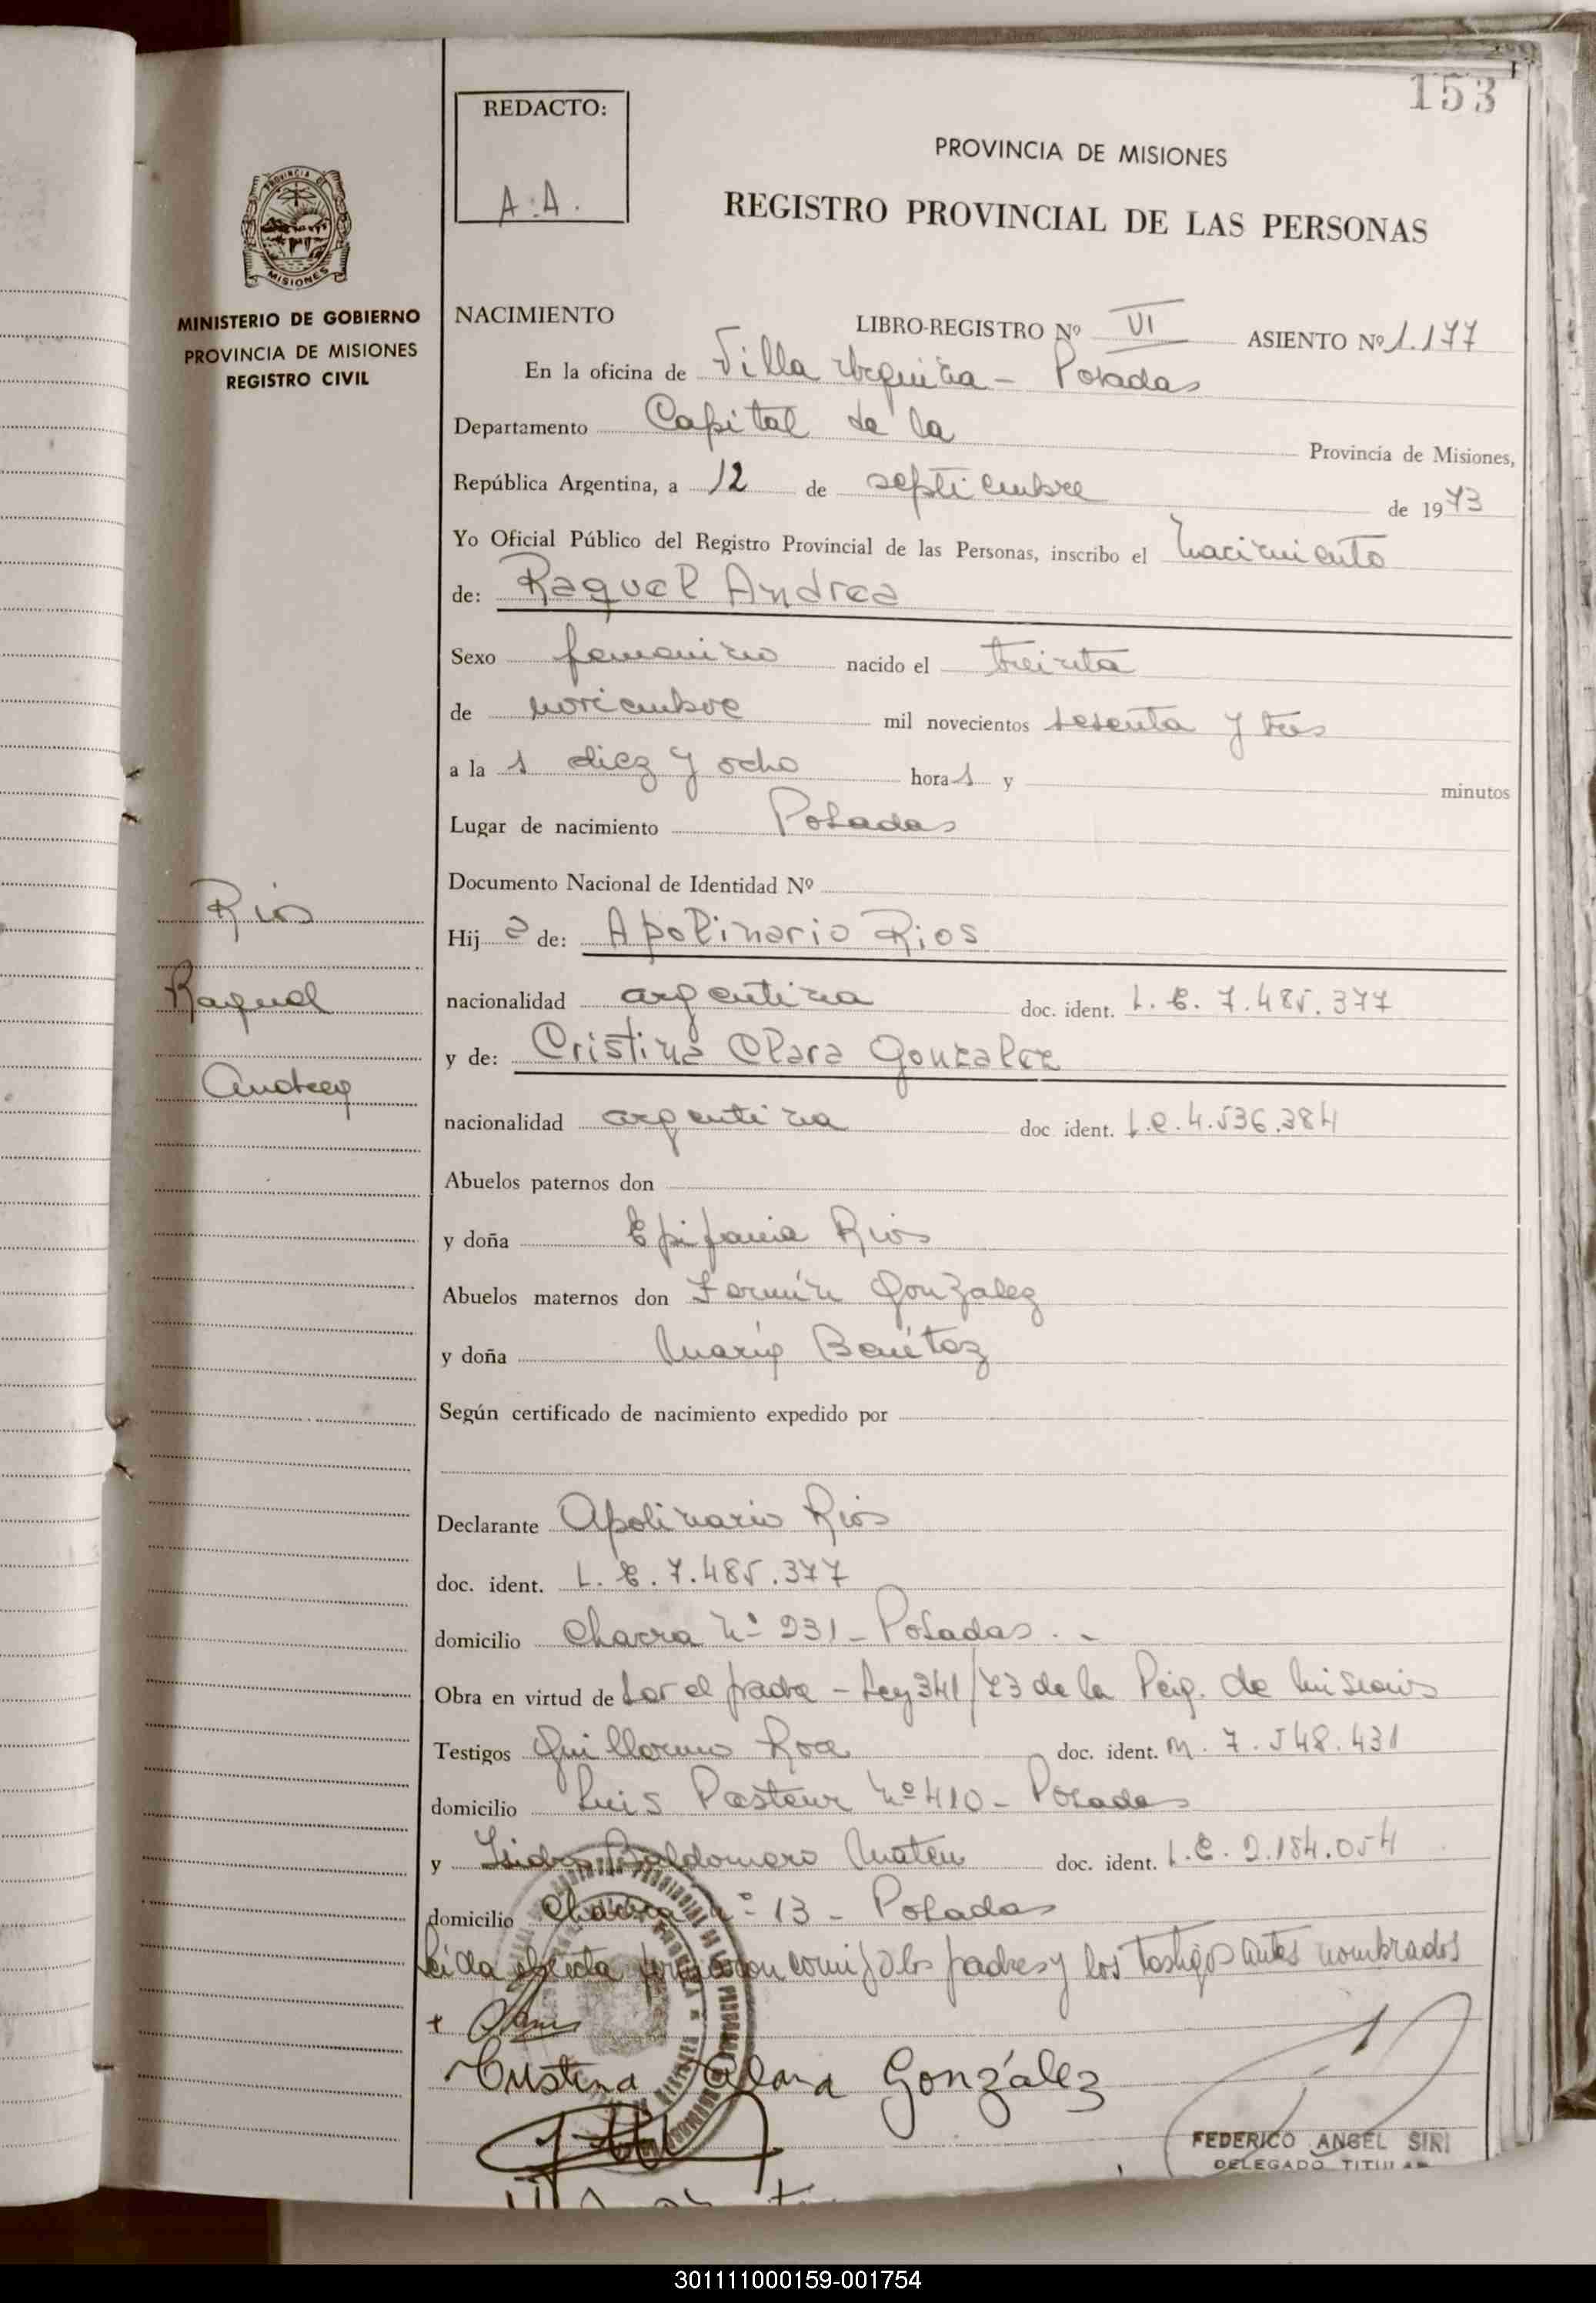 153
REDACTO:
A.A.
PROVINCIA DE MISIONES
REGISTRO PROVINCIAL DE LAS PERSONAS
PROVINCIA DE
MISIONES
MINISTERIO DE GOBIERNO
PROVINCIA DE MISIONES
REGISTRO CIVIL
NACIMIENTO LIBRO-REGISTRO Nº VI ASIENTO Nº 1.177
En la oficina de Villa Urquiza - Posadas
Departamento Capital de la Provincia de Misiones,
República Argentina, a 12 de septiembre de 1973
Yo Oficial Público del Registro Provincial de las Personas, inscribo el Nacimiento
de: Raquel Andrea
Sexo femenino nacido el treinta
de noviembre mil novecientos sesenta y tres
a la s diez y ocho hora s y minutos
Lugar de nacimiento Posadas
Documento Nacional de Identidad Nº
Rios
Raquel
Andrea
Hij a de: Apolinario Rios
nacionalidad argentina doc. ident. L.E. 7.485.377
y de: Cristina Clara Gonzalez
nacionalidad argentina doc ident. L.C. 4.536.384
Abuelos paternos don
y doña Epifania Rios
Abuelos maternos don Fermín Gonzalez
y doña María Benitez
Según certificado de nacimiento expedido por
Declarante Apolinario Rios
doc. ident. L.E. 7.485.377
domicilio Chacra Nº 231 - Posadas. -
Obra en virtud de ser el padre - Ley 341/73 de la Pcia. de Misiones
Testigos Guillermo Roa doc. ident. M. 7.548.431
domicilio Luis Pasteur Nº 410 - Posadas
y Isidro Baldomero doc. ident. L.E. 2.184.054
domicilio Chacra Nº 13 - Posadas
Leida el acta conmigo los padres y los testigos antes nombrados
Cristina Clara González
FEDERICO ANGEL SIRI
DELEGADO TITULAR
301111000159-001754